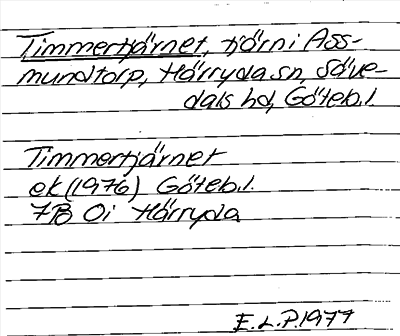 Timmertjärnet, tjärn i Ass-
mundtorp, Härryda sn, Säve-
dals hd, Göteb.l.
Timmertjärnet
ek (1976) Göteb.l.
7B 0i Härryda
E.L.P. 1977